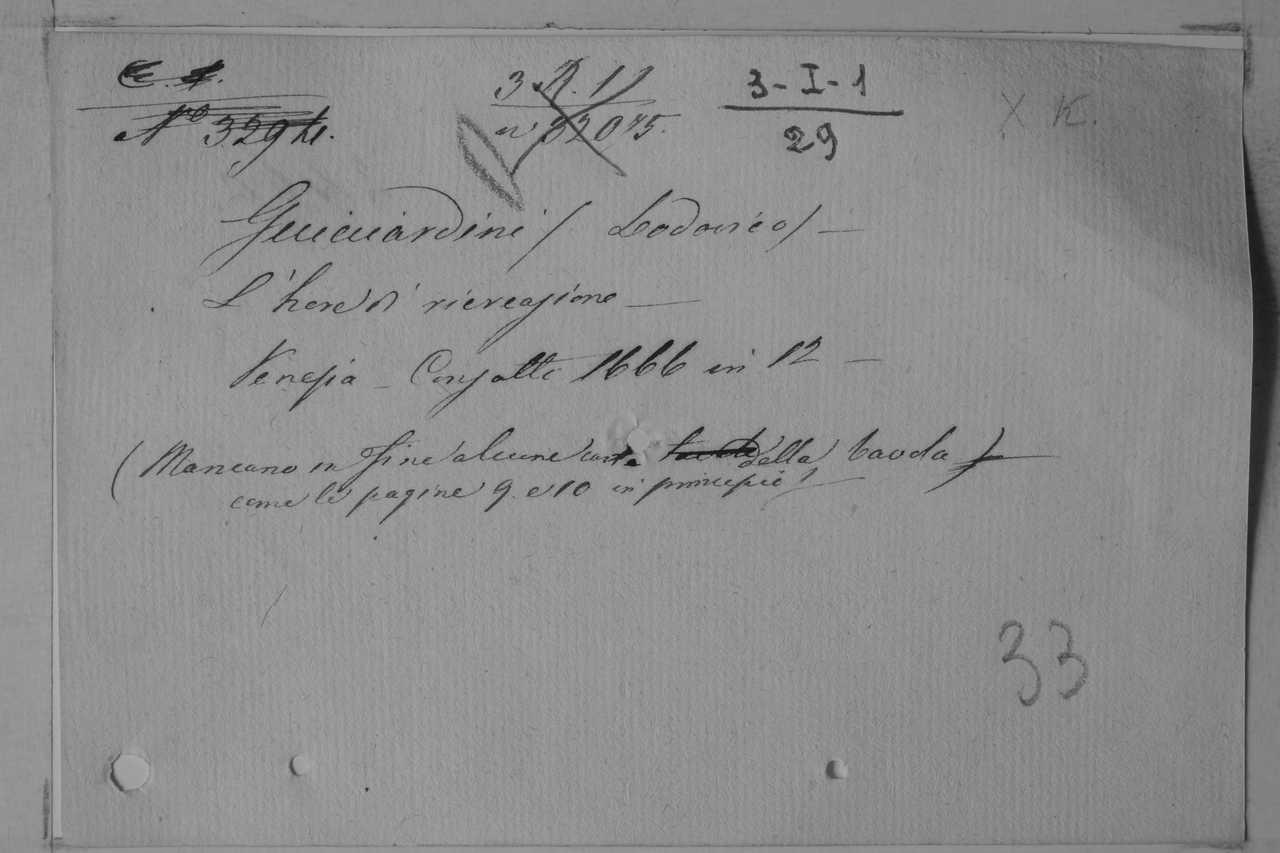 C. 4.
N.º 329
3 A. 11
n 32075.
3-I-1
29
X K.
Guicciardini / Lodovico) —
L'hore di ricreazione —
Venezia – Conzatto 1666 in 12 —
(Mancano in fine alcune carte della tavola)
come le pagine 9. e 10 in principio) —
33